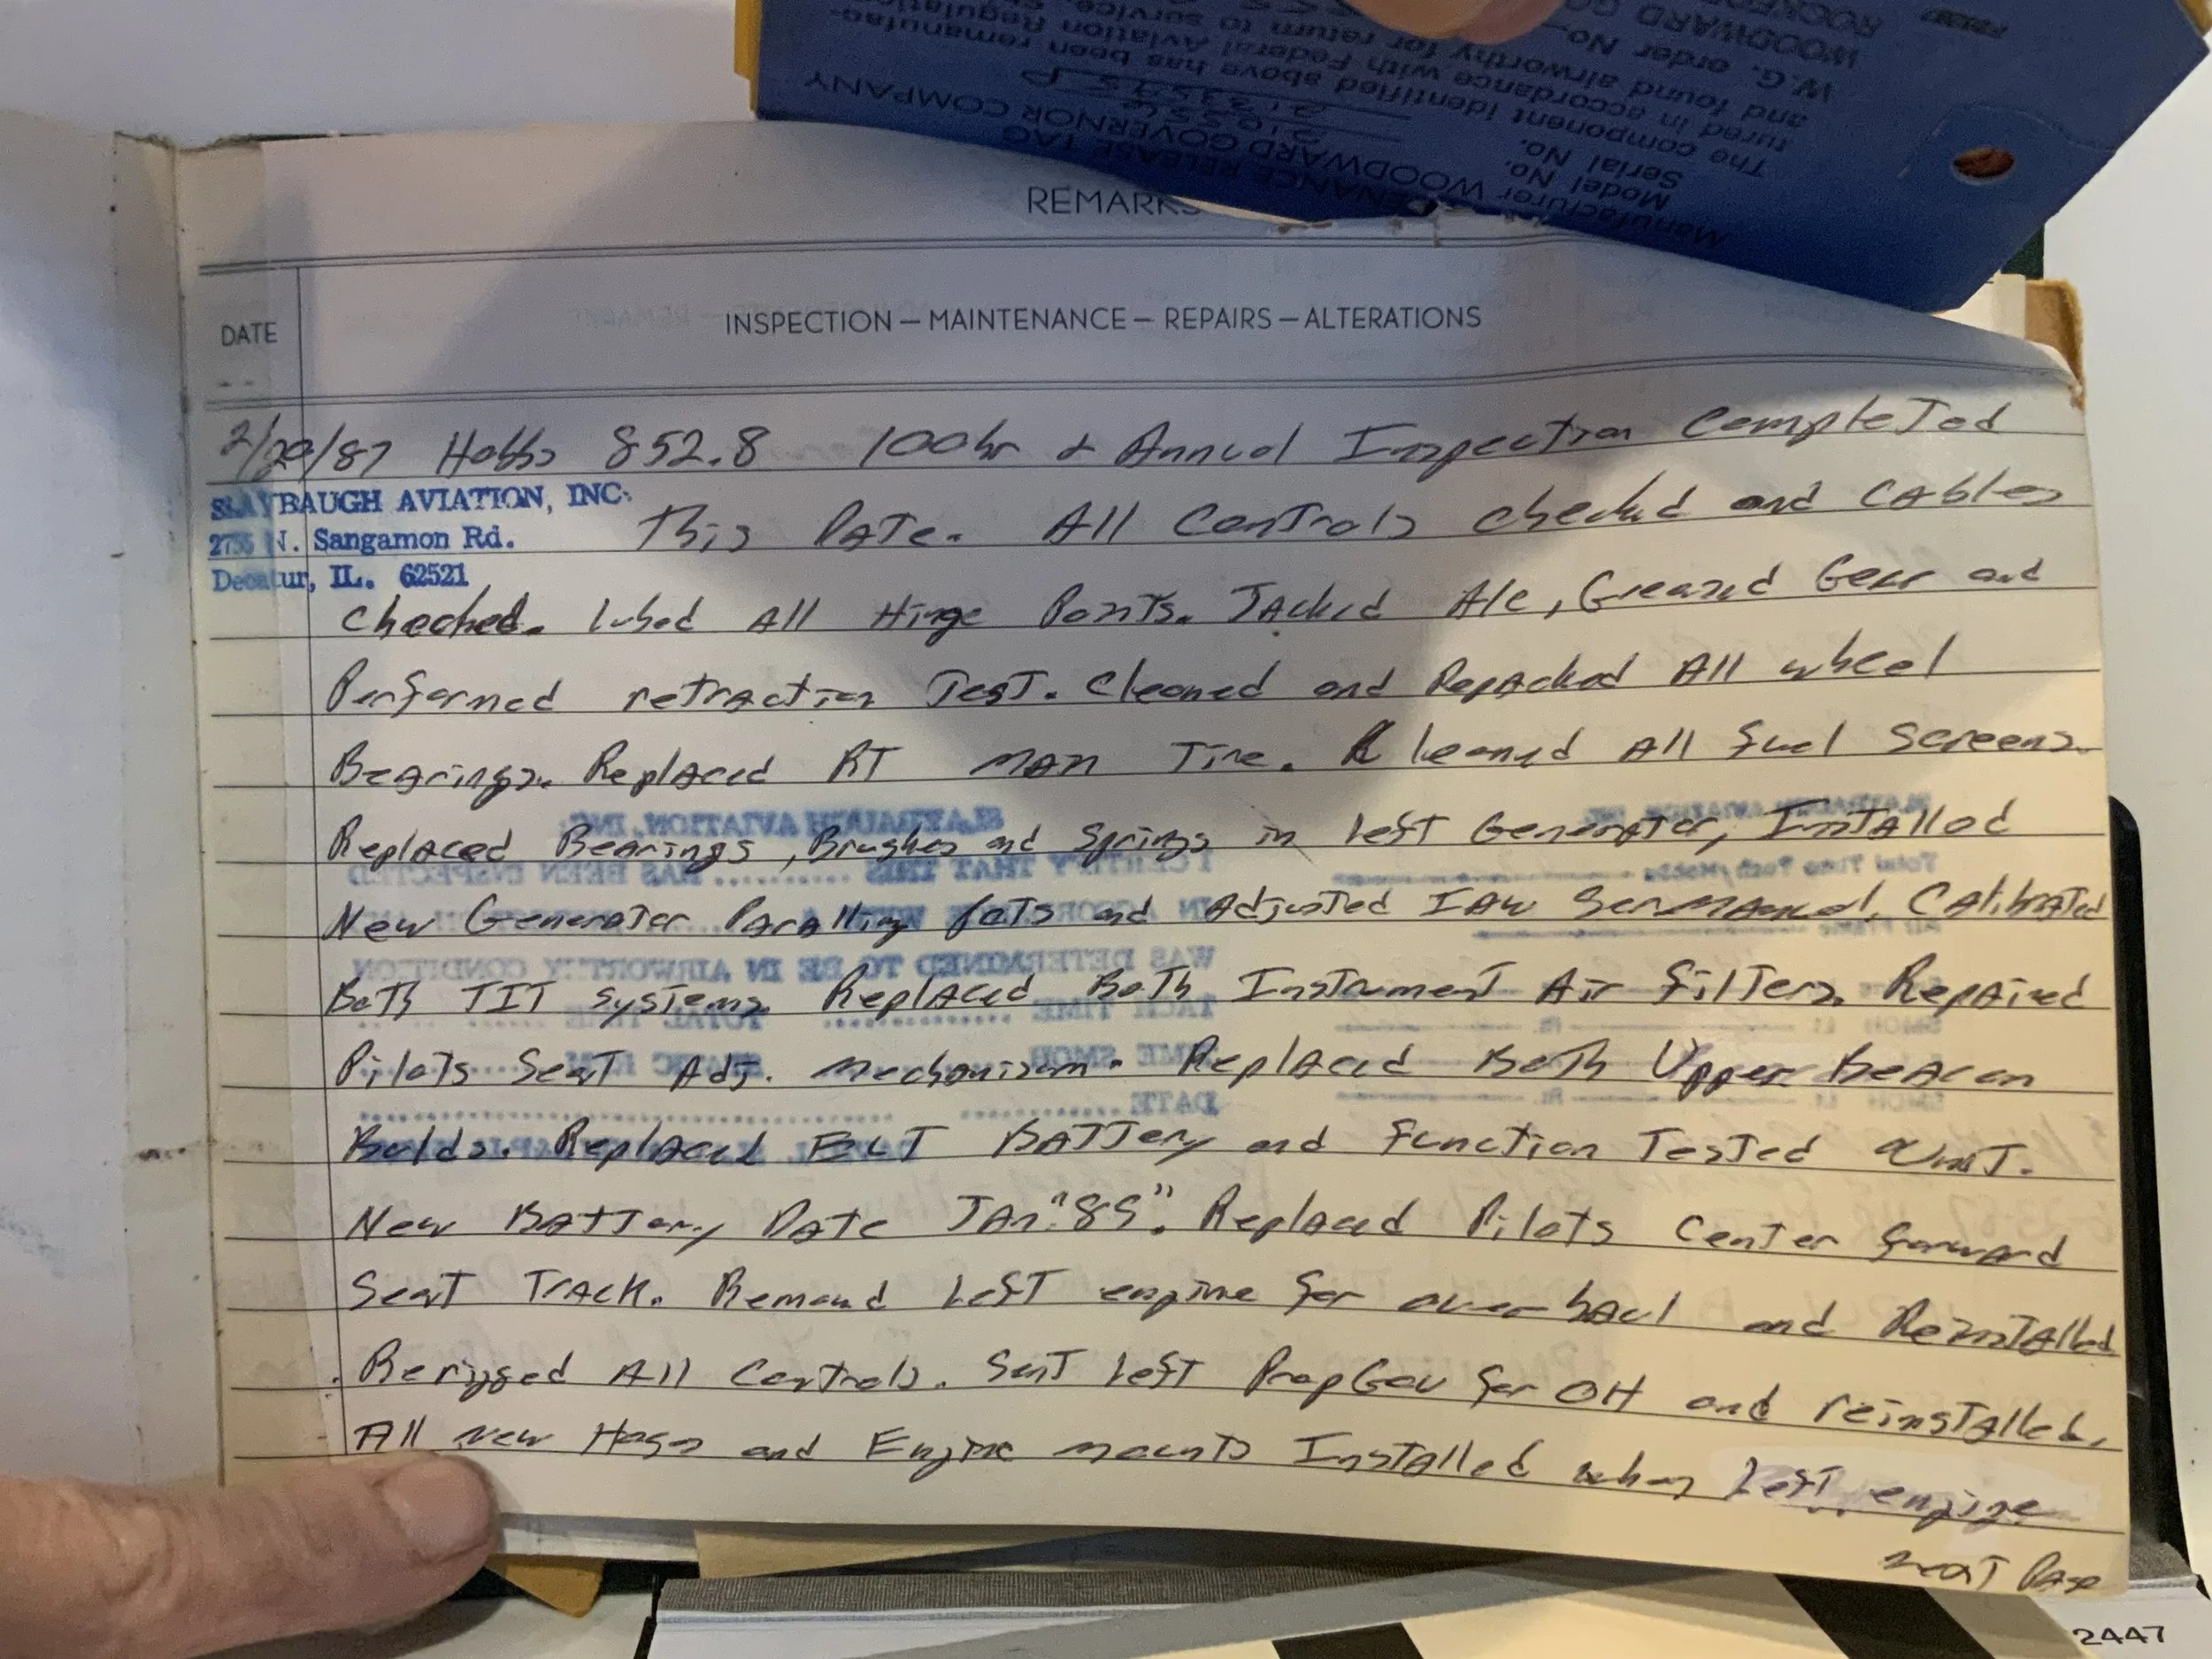 MAINTENANCE RELEASE TAG
Manufacturer WOODWARD GOVERNOR COMPANY
Model No. 210556
Serial No. P
The component identified above has been remanufac-
tured in accordance with Federal Aviation Regulations
and found airworthy for return to service.
W.G. order No.
WOODWARD GO
ROCKFO
REMARKS
DATE
INSPECTION — MAINTENANCE — REPAIRS — ALTERATIONS
2/20/87 Hobbs 852.8 100hr & Annual Inspection Completed
SLAYBAUGH AVIATION, INC.
2756 N. Sangamon Rd.
Decatur, IL. 62521
This Date. All Controls checked and Cables
Checked. Lubed All Hinge Points. Jacked A/C, Greased Gear and
Performed retraction Test. Cleaned and Repacked All wheel
Bearings. Replaced RT main Tire. Cleaned All fuel screens.
Replaced Bearings, Brushes and Springs in left Generator, Installed
New Generator Paralling Pots and Adjusted IAW Ser manual. Calibrated
Both TIT systems. Replaced Both Instrument Air filters. Repaired
Pilots Seat Adj. mechanism. Replaced Both Upper Beacon
Bulbs. Replaced ELT Battery and function Tested Unit.
New Battery Date Jan "89". Replaced Pilots Center forward
Seat Track. Removed Left engine for overhaul and Reinstalled
Rerigged All Controls. Sent Left Prop Gov for OH and reinstalled.
All new Hoses and Engine mounts Installed when Left engine
next Page
2447